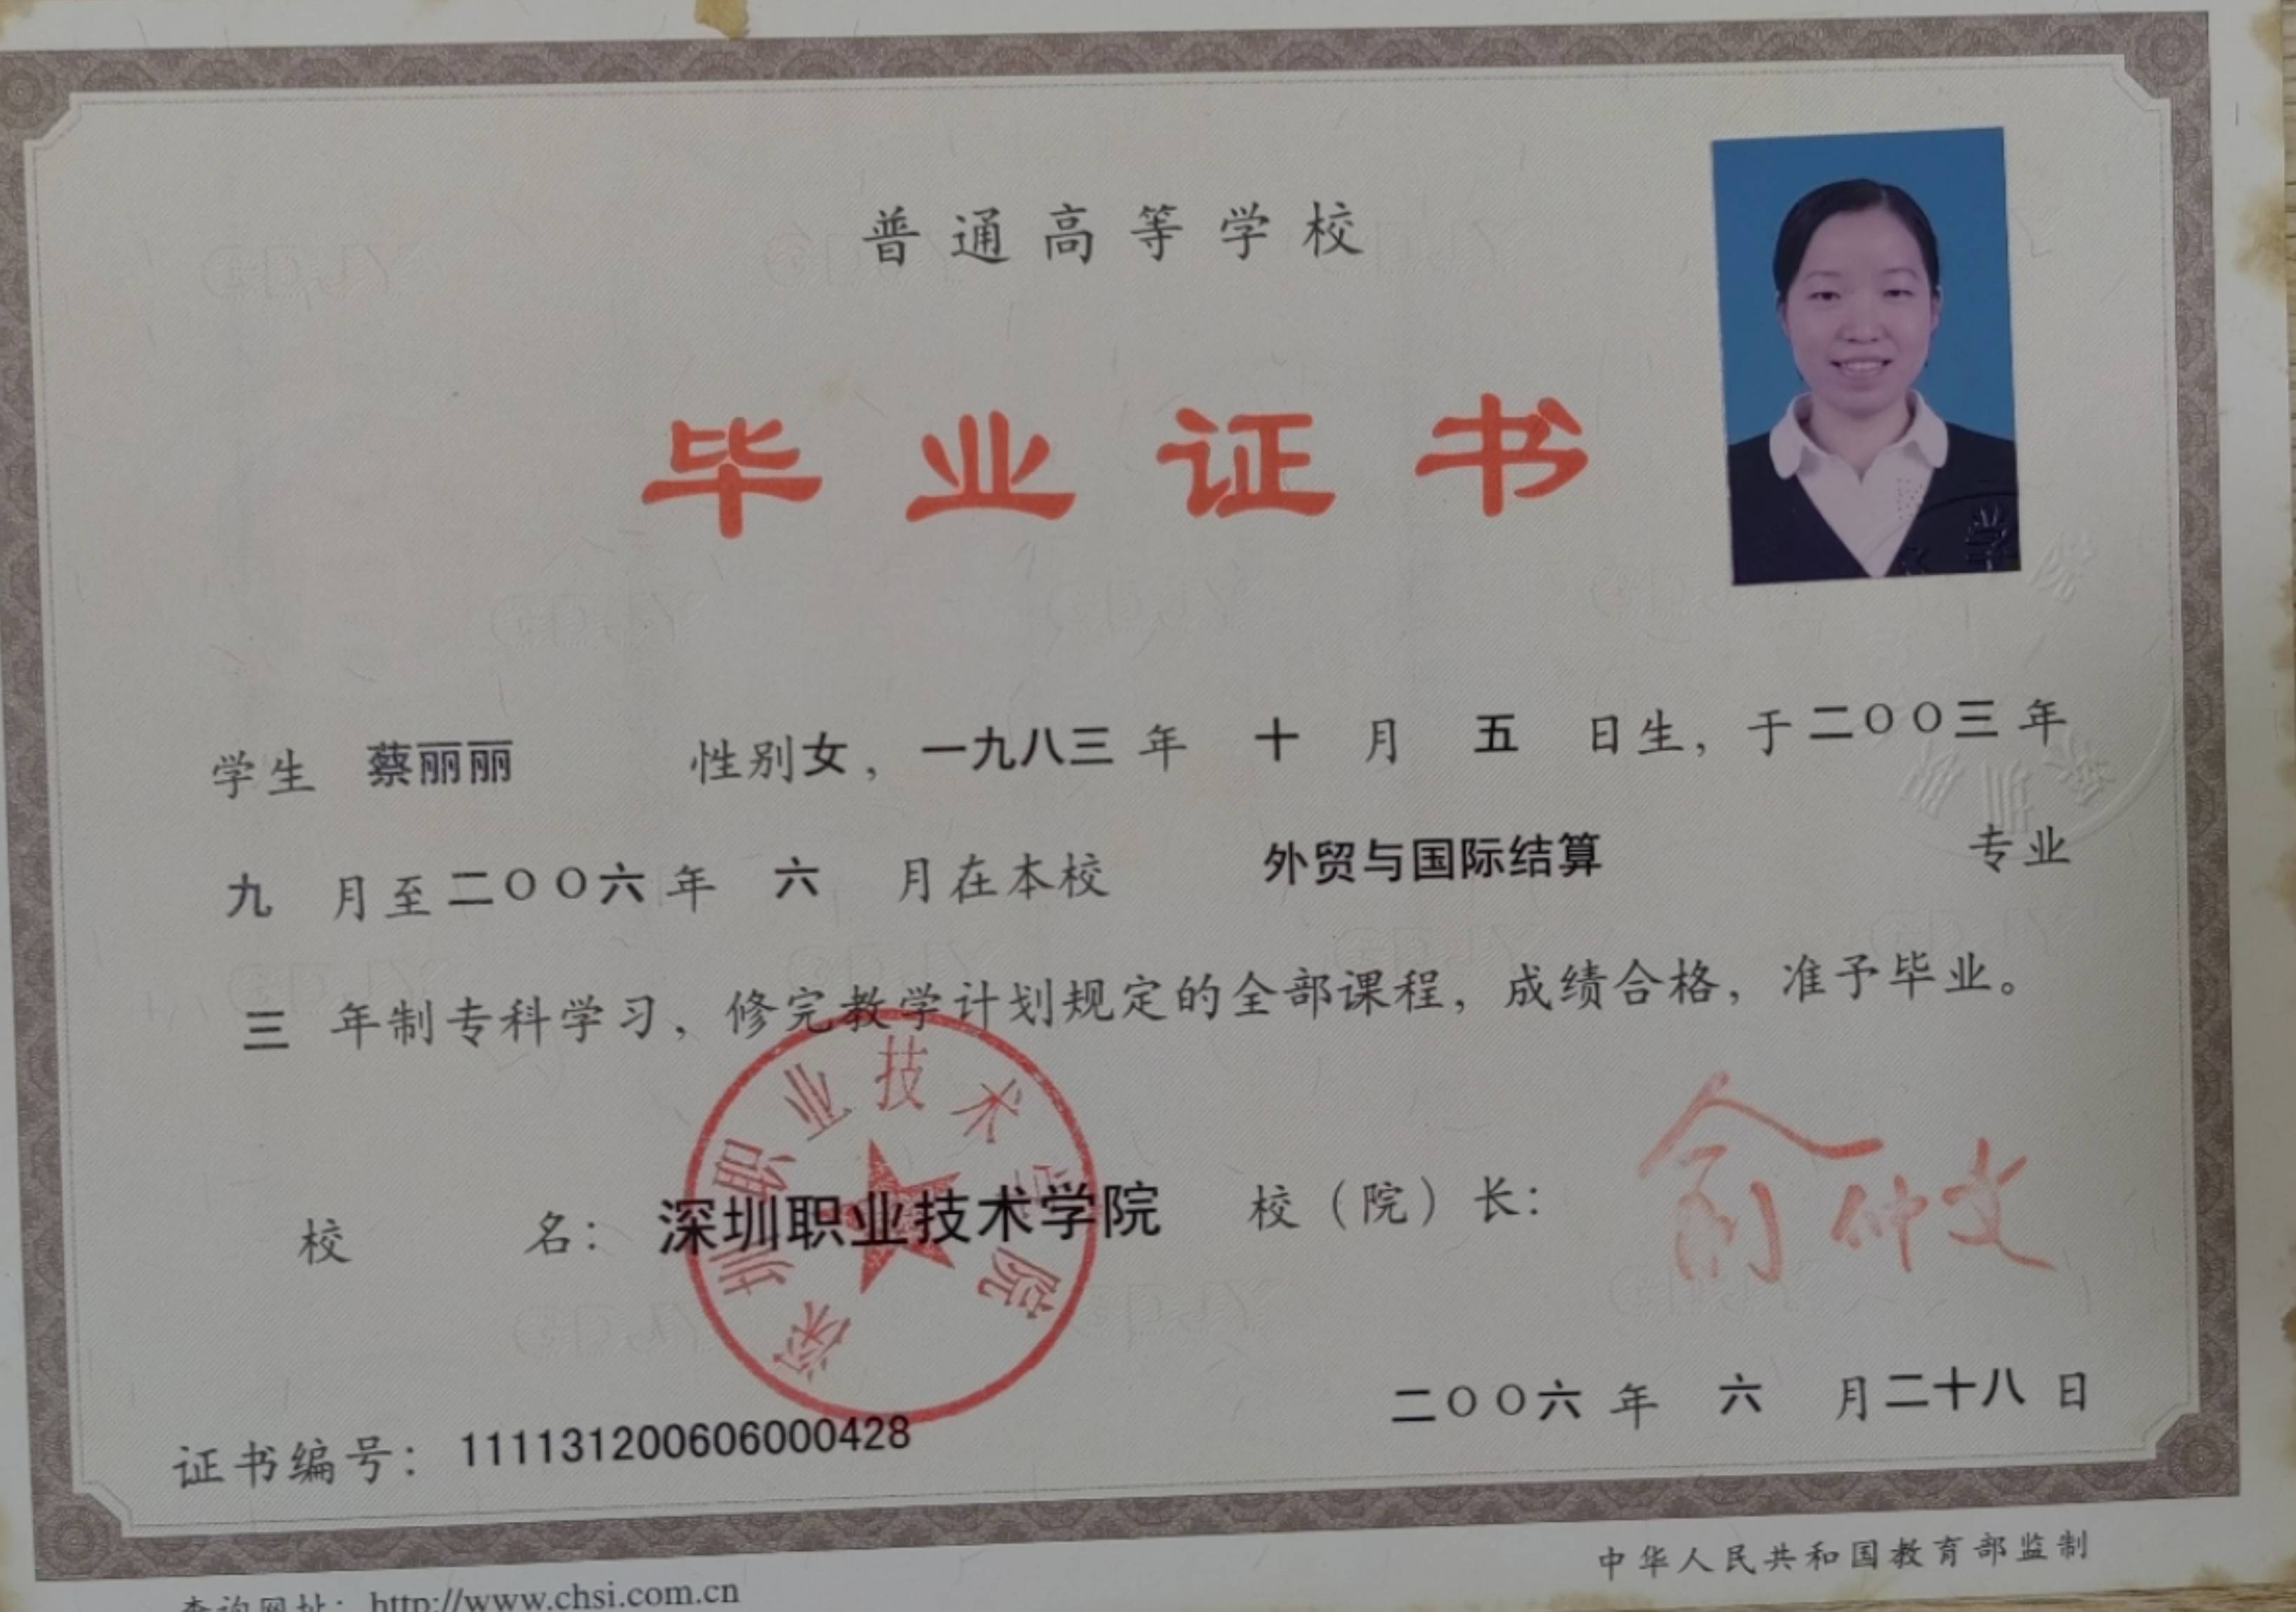 普通高等学校
毕业证书
学生 蔡丽丽 性别女，一九八三年 十 月 五 日生，于二〇〇三年
九 月至二〇〇六年 六 月在本校 外贸与国际结算 专业
三 年制专科学习，修完教学计划规定的全部课程，成绩合格，准予毕业。
深圳职业技术学院
校 名：深圳职业技术学院 校（院）长：俞仲文
二〇〇六年 六 月二十八日
证书编号：111131200606000428
中华人民共和国教育部监制
查询网址：http://www.chsi.com.cn